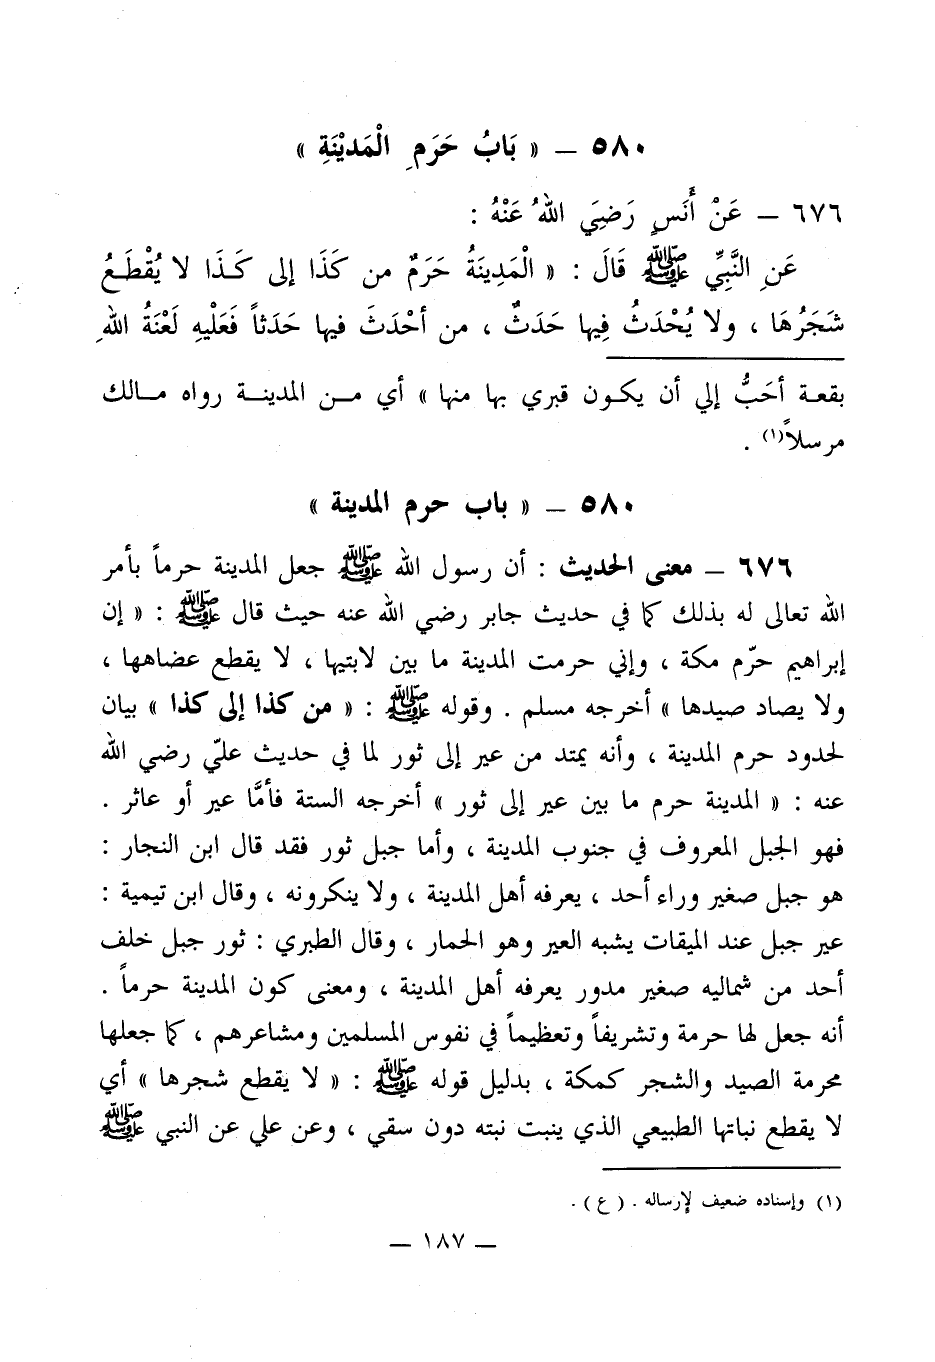 ٥٨٠ — « بَابُ حَرَمِ الْمَدِيْنَةِ »
٦٧٦ — عَنْ أَنَسٍ رَضِيَ اللهُ عَنْهُ :
عَنِ النَّبِيِّ ﷺ قَالَ : « الْمَدِينَةُ حَرَمٌ من كَذَا إلى كَـذَا لا يُقْطَـعُ
شَجَرُهَا ، ولا يُحْدَثُ فِيها حَدَثٌ ، من أحْدَثَ فيها حَدَثاً فَعَلْيهِ لَعْنَةُ اللهِ
بقعـة أحَبُّ إلي أن يكـون قبري بها منها » أي مـن المدينـة رواه مـالك
مرسلاً(١) .
٥٨٠ — « باب حرم المدينة »
٦٧٦ — معنى الحديث : أن رسول الله ﷺ جعل المدينة حرماً بأمر
الله تعالى له بذلك كما في حديث جابر رضي الله عنه حيث قال ﷺ : « إن
إبراهيم حرّم مكة ، وإني حرمت المدينة ما بين لابتيها ، لا يقطع عضاهها ،
ولا يصاد صيدها » أخرجه مسلم . وقوله ﷺ : « من كذا إلى كذا » بيان
لحدود حرم المدينة ، وأنه يمتد من عير إلى ثور لما في حديث عليّ رضي الله
عنه : « المدينة حرم ما بين عير إلى ثور » أخرجه الستة فأمَّا عير أو عائر .
فهو الجبل المعروف في جنوب المدينة ، وأما جبل ثور فقد قال ابن النجار :
هو جبل صغير وراء أحد ، يعرفه أهل المدينة ، ولا ينكرونه ، وقال ابن تيمية :
عير جبل عند الميقات يشبه العير وهو الحمار ، وقال الطبري : ثور جبل خلف
أحد من شماليه صغير مدور يعرفه أهل المدينة ، ومعنى كون المدينة حرماً .
أنه جعل لها حرمة وتشريفاً وتعظيماً في نفوس المسلمين ومشاعرهم ، كما جعلها
محرمة الصيد والشجر كمكة ، بدليل قوله ﷺ : « لا يقطع شجرها » أي
لا يقطع نباتها الطبيعي الذي ينبت نبته دون سقي ، وعن علي عن النبي ﷺ
(١) وإسناده ضعيف لإرساله . ( ع ) .
— ١٨٧ —